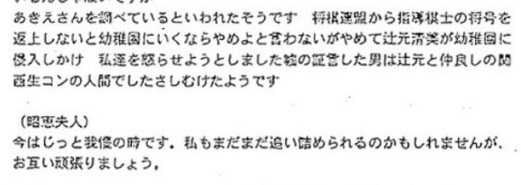 あきえさんを調べているといわれたそうです　将棋連盟から指導棋士の将号を
返上しないと幼稚園にいくならやめよと言わないがやめて辻元清美が幼稚園に
侵入しかけ　私達を怒らせようとしました嘘の証言した男は辻元と仲良しの関
西生コンの人間でしたさしむけたようです
（昭恵夫人）
今はじっと我慢の時です。私もまだまだ追い詰められるのかもしれませんが、
お互い頑張りましょう。